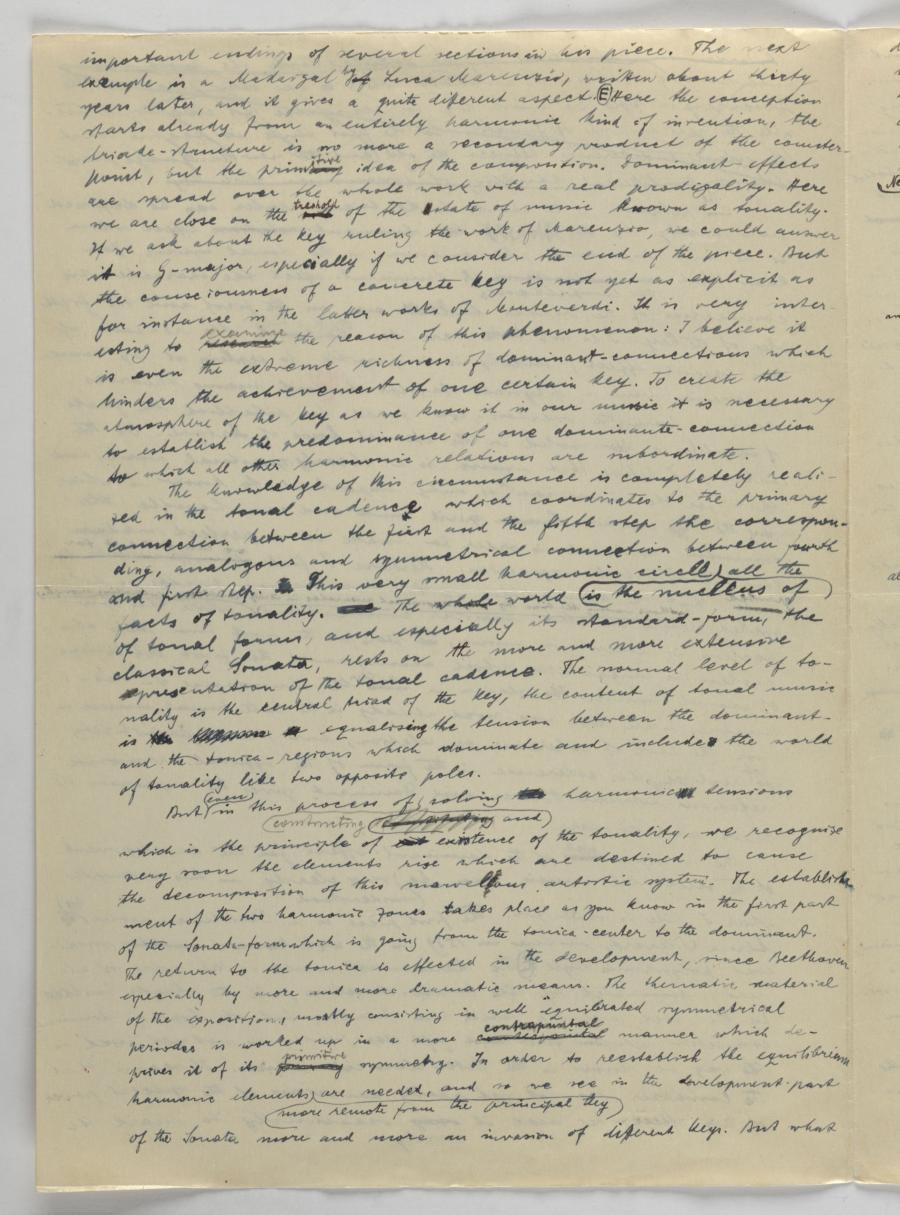 important endings of several sections in his piece. The next
example is a Madrigal by Luca Marenzio, written about thirty
years later, and it gives a quite different aspect. E Here the conception
starts already from an entirely harmonic kind of invention, the
triade-structure is no more a secondary product of the counter-
point, but the primitive idea of the composition. Dominant-effects
are spread over the whole work with a real prodigality. Here
we are close on the treshold of the state of music known as tonality.
If we ask about the key ruling the work of Marenzio, we could answer
it is G-major, especially if we consider the end of the piece. But
the consciousness of a concrete key is not yet as explicit as
for instance in the latter works of Monteverdi. It is very inter-
esting to examine the reason of this phenomenon: I believe it
is even the extreme richness of dominant-connections which
hinders the achievement of one certain key. To create the
atmosphere of the key as we know it in our music it is necessary
to establish the predominance of one dominante-connection
to which all other harmonic relations are subordinate.
The knowledge of this circumstance is completely reali-
zed in the tonal cadence which coordinates to the primary
connection between the first and the fifth step the correspon-
ding, analogous and symmetrical connection between fourth
and first step. This very small harmonic circle all the
facts of tonality. The whole world is the nucleus of
of tonal forms, and especially its standard-form, the
classical Sonata, rests on the more and more extensive
representation of the tonal cadence. The normal level of to-
nality is the central triad of the key, the content of tonal music
is equalising the tension between the dominant-
and the tonica-regions which dominate and include the world
of tonality like two opposite poles.
But even in this process of solving harmonic tensions
constructing and
which is the principle of existence of the tonality, we recognise
very soon the elements rise which are destined to cause
the decomposition of this marvellous artistic system. The establish-
ment of the two harmonic zones takes place as you know in the first part
of the Sonata-form which is going from the tonica-center to the dominant.
The return to the tonica is effected in the development, since Beethoven
especially by more and more dramatic means. The thematic material
of the exposition, mostly consisting in well equilibrated symmetrical
periodes is worked up in a more contrapuntal manner which de-
prives it of its primitive symmetry. In order to reestablish the equilibrium
harmonic elements are needed, and so we see in the development-part
more remote from the principal key
of the Sonata more and more an invasion of different keys. But what